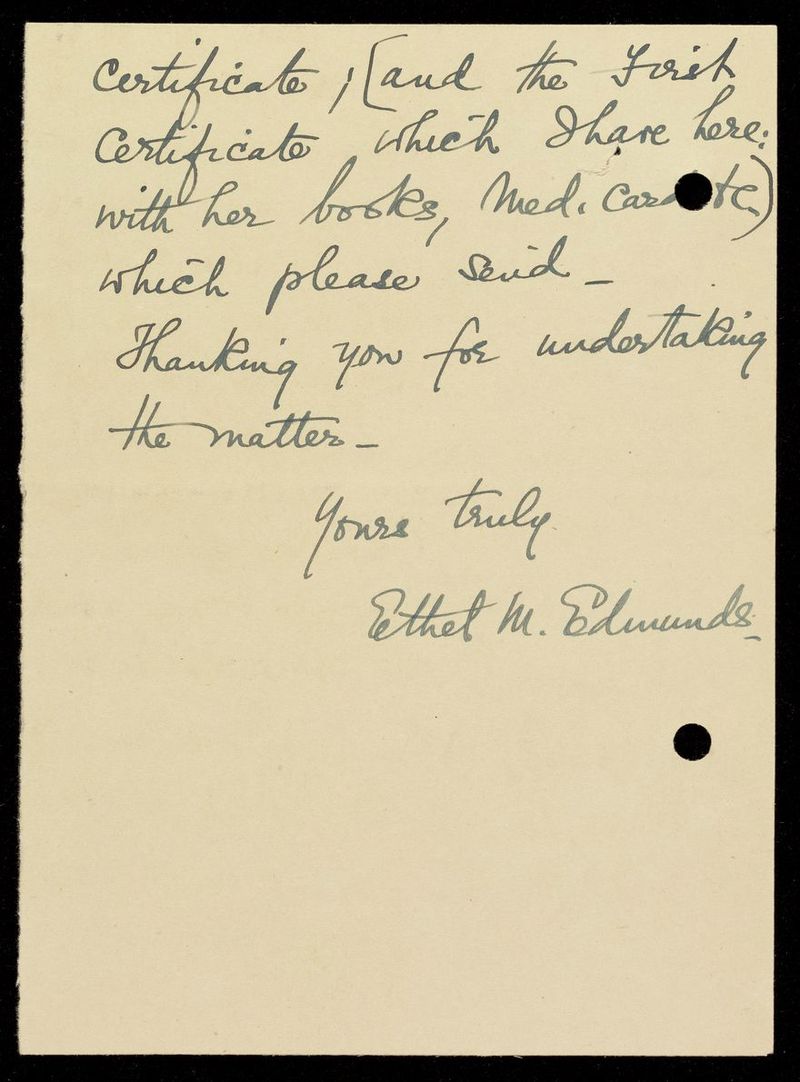 Certificate, (and the First
Certificate which I have here:
with her books, Med. Card etc.)
which please send –
Thanking you for undertaking
the matter –
Yours truly
Ethel M. Edmunds